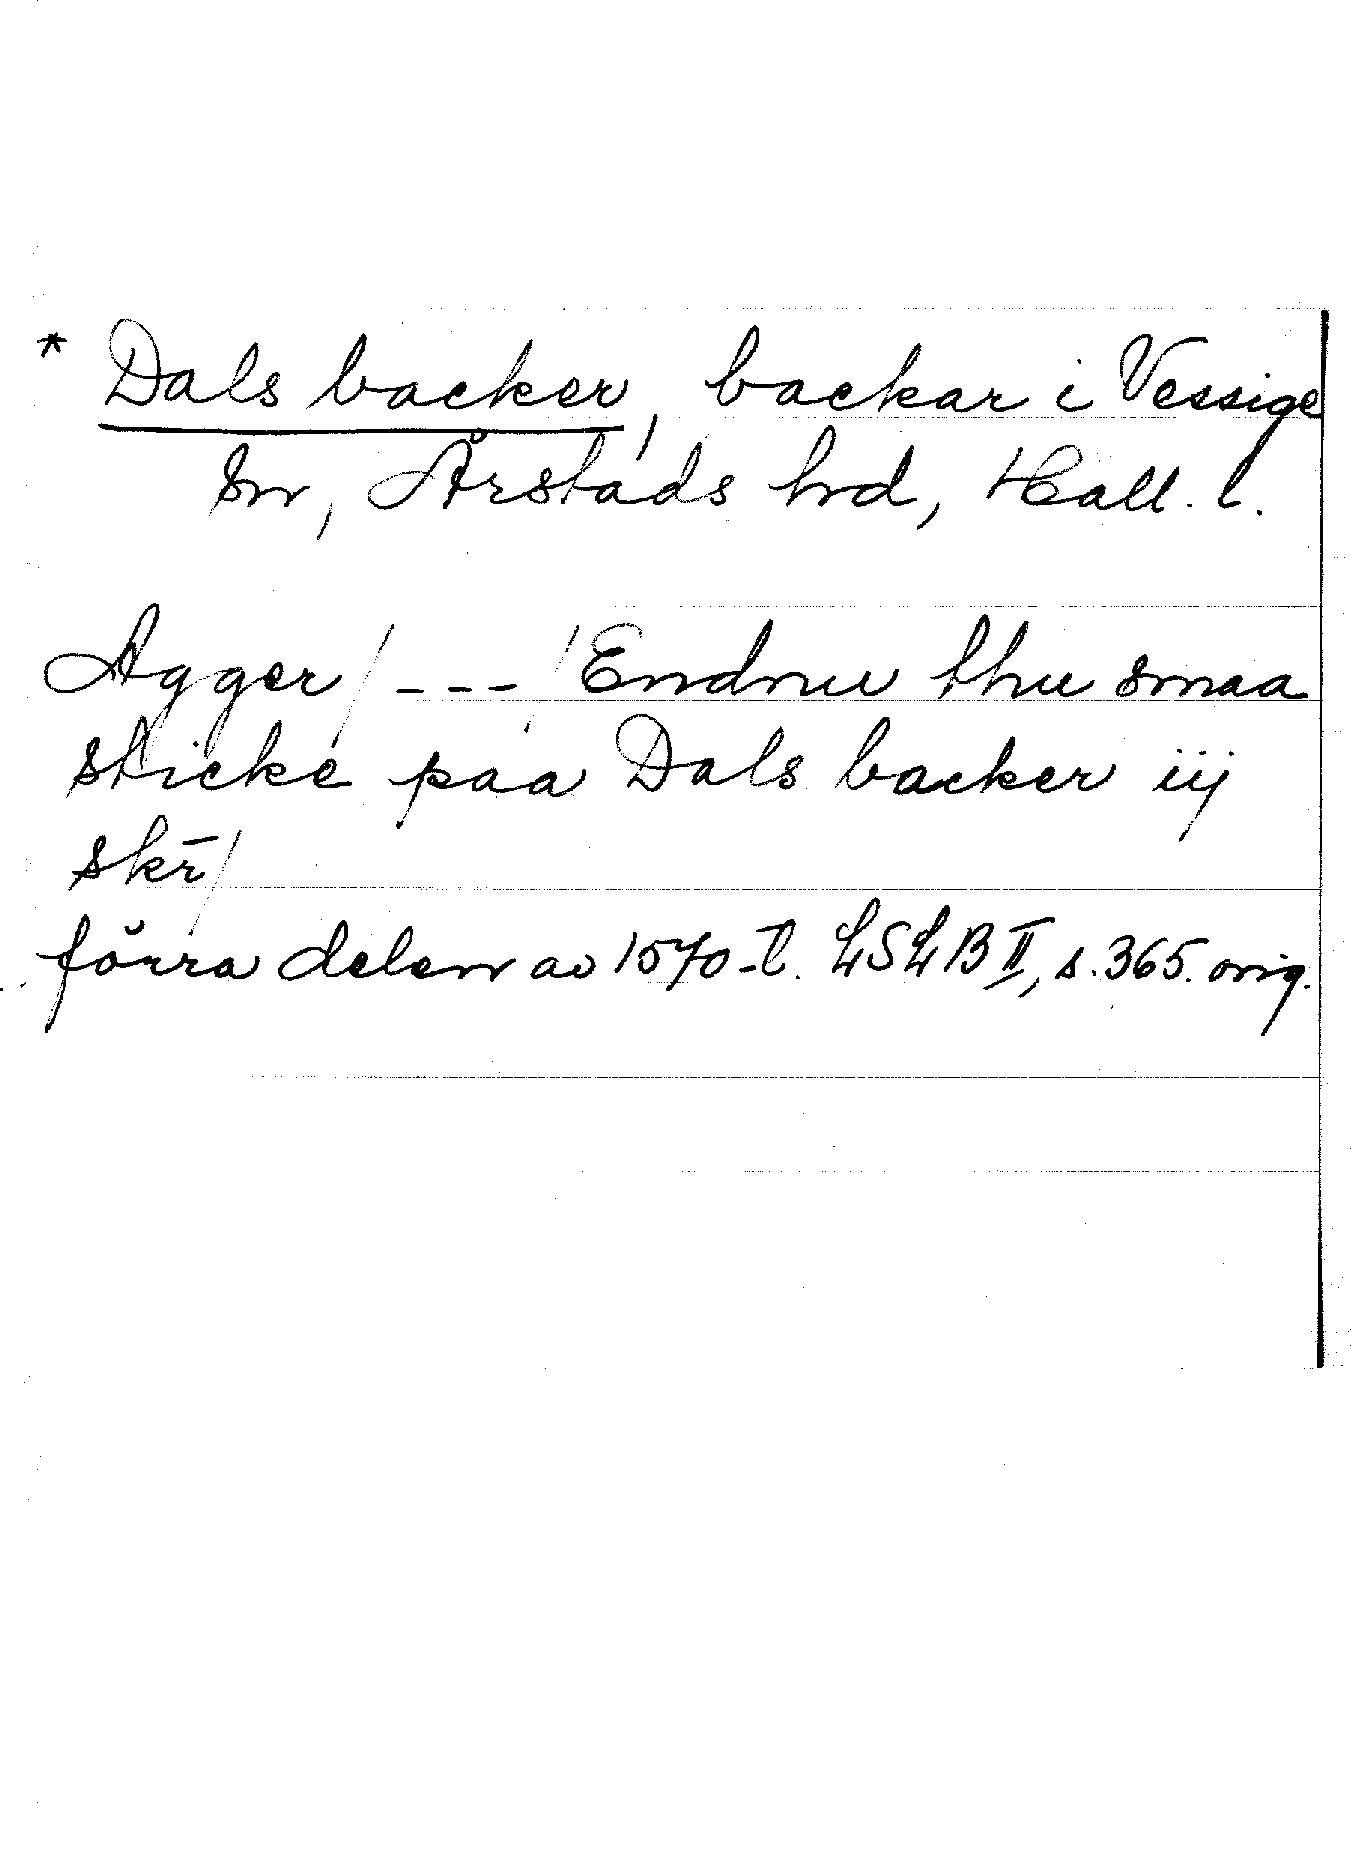 * Dals backer, backar i Vessige
sn, Årstads hrd, Hall. l.
Agger / --- / Endnu thu smaa
sticke paa Dals backer iij
skr̄ /
förra delen av 1570-t. LSLB II, s. 365. orig.